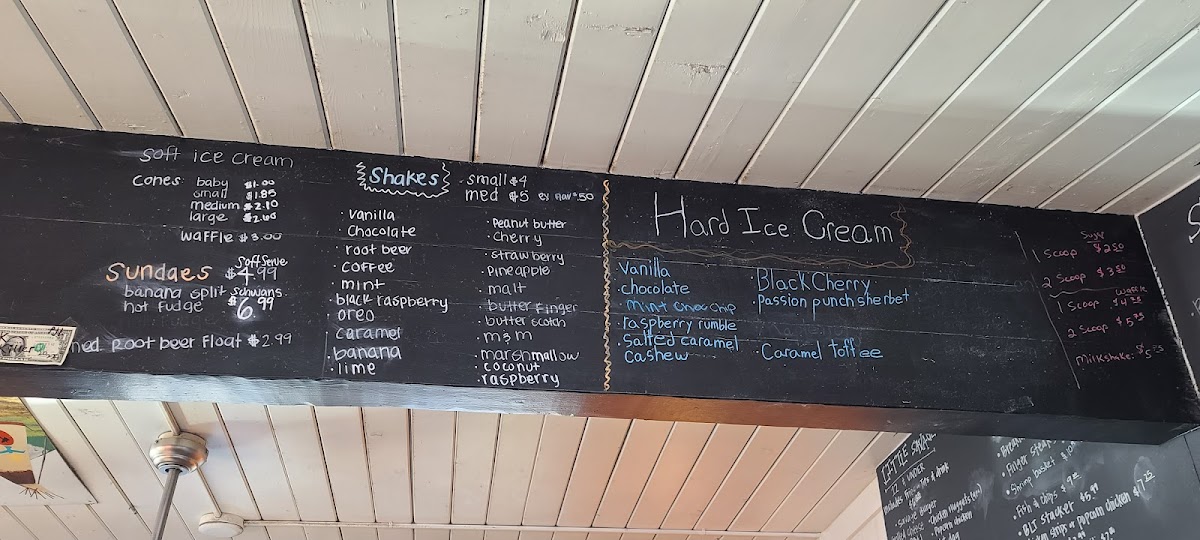 Soft ice cream
Cones baby $1.00
small $1.85
medium $2.10
large $2.60
Waffle $3.00
Sundaes Soft Serve $4.99
banana split Schwans
hot fudge $6.99
med Root beer Float $2.99
Shakes
small $4
med $5 ex flav $.50
vanilla
chocolate
root beer
coffee
mint
black raspberry
oreo
caramel
banana
lime
Peanut butter
Cherry
strawberry
Pineapple
malt
butter finger
butter scotch
m3m
marshmallow
coconut
raspberry
Hard Ice Cream
vanilla
chocolate
mint choc chip
raspberry rumble
salted caramel
cashew
Black Cherry
passion punch sherbet
Caramel toffee
Sugar
1 Scoop $2.50
2 Scoop $3.50
Waffle
1 Scoop
2 Scoop
Milkshake:
LITTLE SAVAGE
12 & UNDER
Savage Burger
Chicken Nuggets
Popcorn chicken
Finger steak
Shrimp basket
Fish & chips
BLT STACKER $5.99
popcorn chicken $7.25